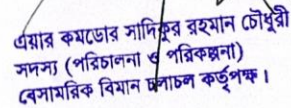 এয়ার কমডোর সাদিকুর রহমান চৌধুরী
সদস্য (পরিচালনা ও পরিকল্পনা)
বেসামরিক বিমান চলাচল কর্তৃপক্ষ।